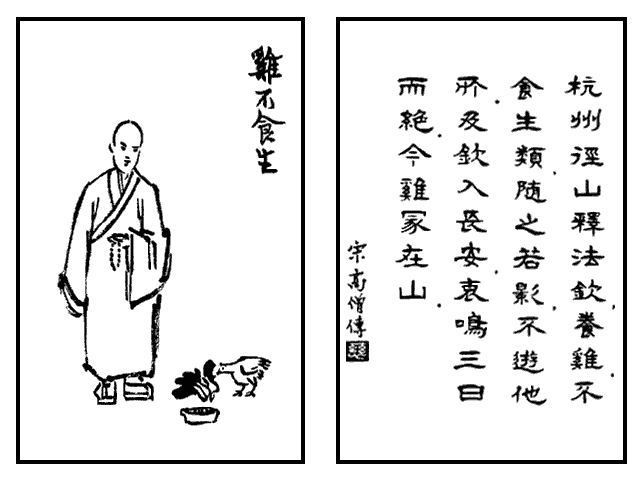 雞不食生
杭州徑山釋法欽養雞不
食生類随之若影不遊他
所及欽入長安哀鳴三日
而絕今雞冢在山
宋高僧傳